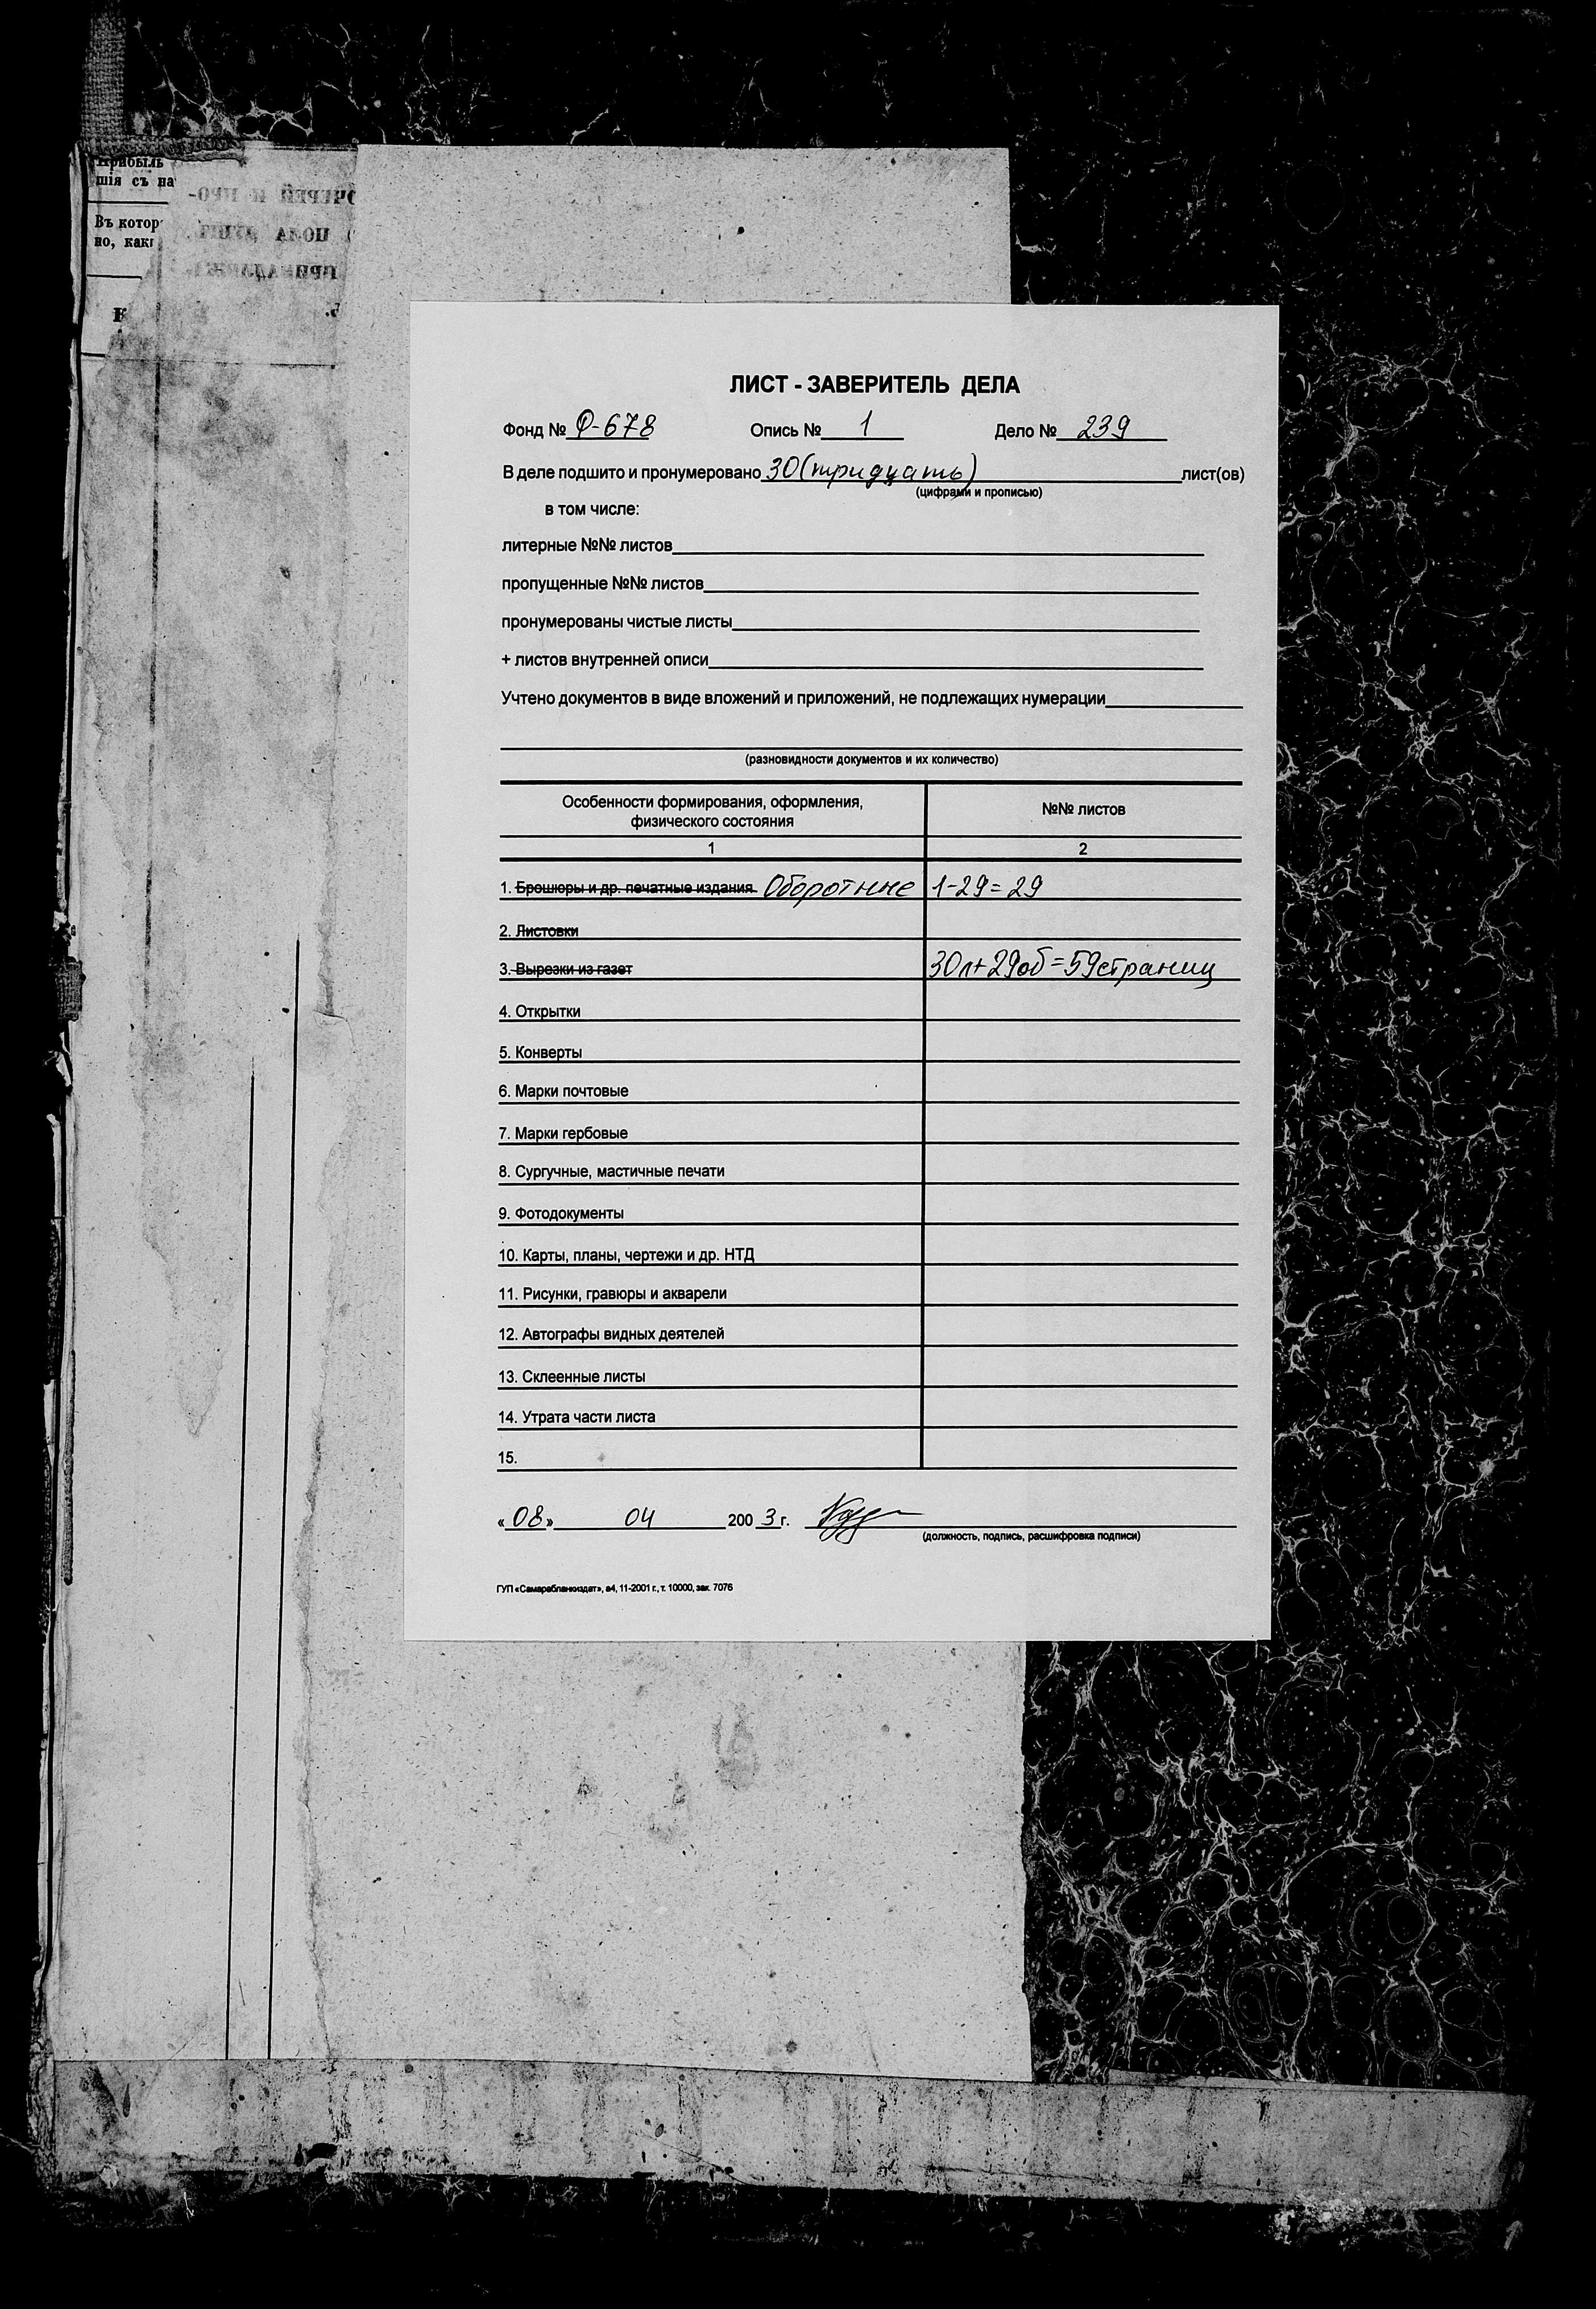 Прибыль
шія съ на
Въ котор
но, какі
ЛИСТ - ЗАВЕРИТЕЛЬ ДЕЛА
Фонд № Ф-678 Опись № 1 Дело № 239
В деле подшито и пронумеровано 30 (тридцать) лист(ов)
(цифрами и прописью)
в том числе:
литерные №№ листов
пропущенные №№ листов
пронумерованы чистые листы
+ листов внутренней описи
Учтено документов в виде вложений и приложений, не подлежащих нумерации
(разновидности документов и их количество)
Особенности формирования, оформления, физического состояния №№ листов
1 2
1. Брошюры и др. печатные издания Оборотные 1-29=29
2. Листовки
3. Вырезки из газет 30л+29об=59страниц
4. Открытки
5. Конверты
6. Марки почтовые
7. Марки гербовые
8. Сургучные, мастичные печати
9. Фотодокументы
10. Карты, планы, чертежи и др. НТД
11. Рисунки, гравюры и акварели
12. Автографы видных деятелей
13. Склеенные листы
14. Утрата части листа
15.
«08» 04 2003 г.
(должность, подпись, расшифровка подписи)
ГУП «Самарабланкиздат», а4, 11-2001 г., т. 10000, зак. 7076